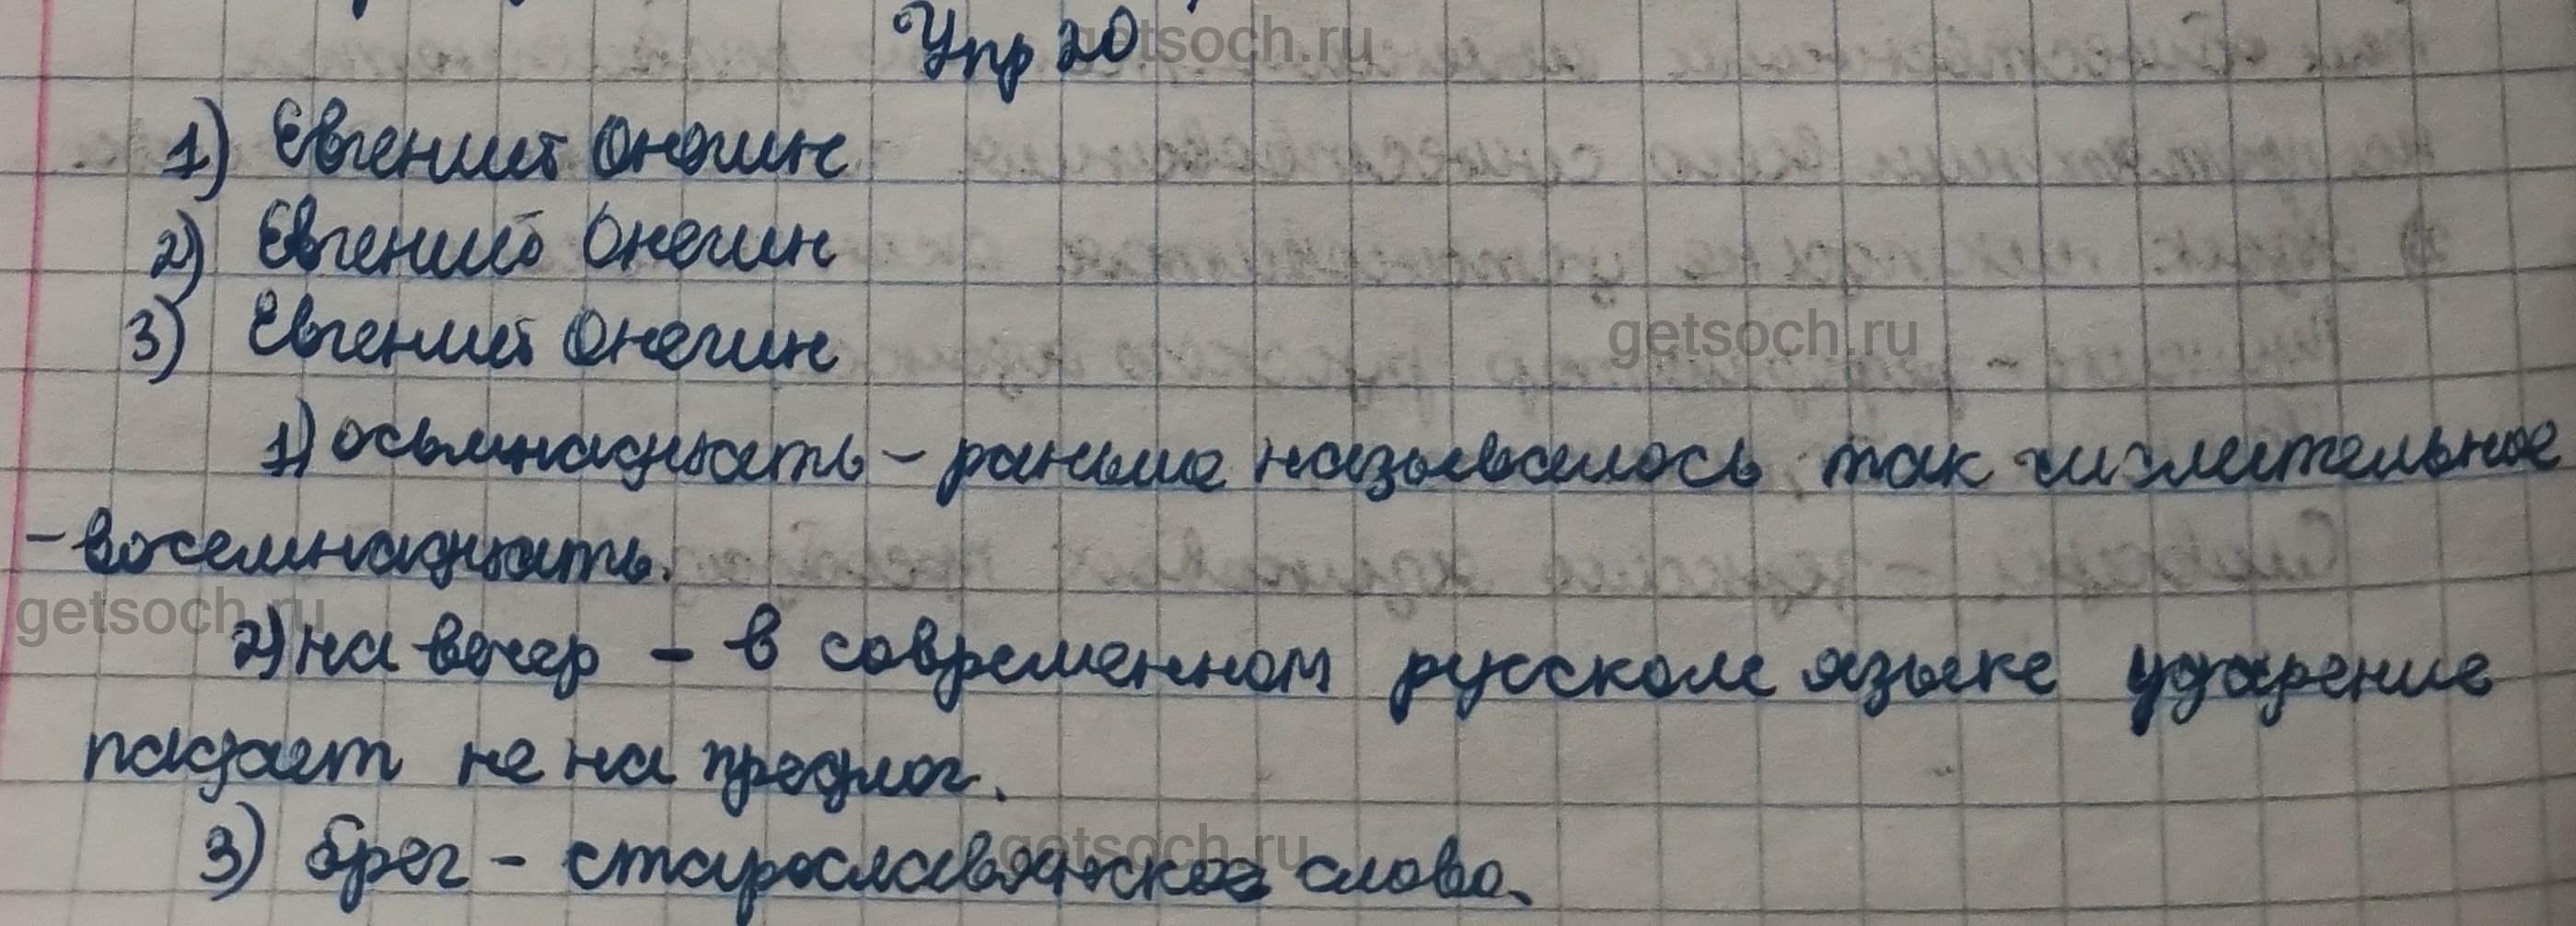 Упр 20
getsoch.ru
1) Евгений Онегин
2) Евгений Онегин
3) Евгений Онегин
getsoch.ru
1) осьмнадцать - раньше называлось так числительное
- восемнадцать.
getsoch.ru
2) на вечер - в современном русском языке ударение
падает не на предлог.
3) брег - старославянское слово.
getsoch.ru